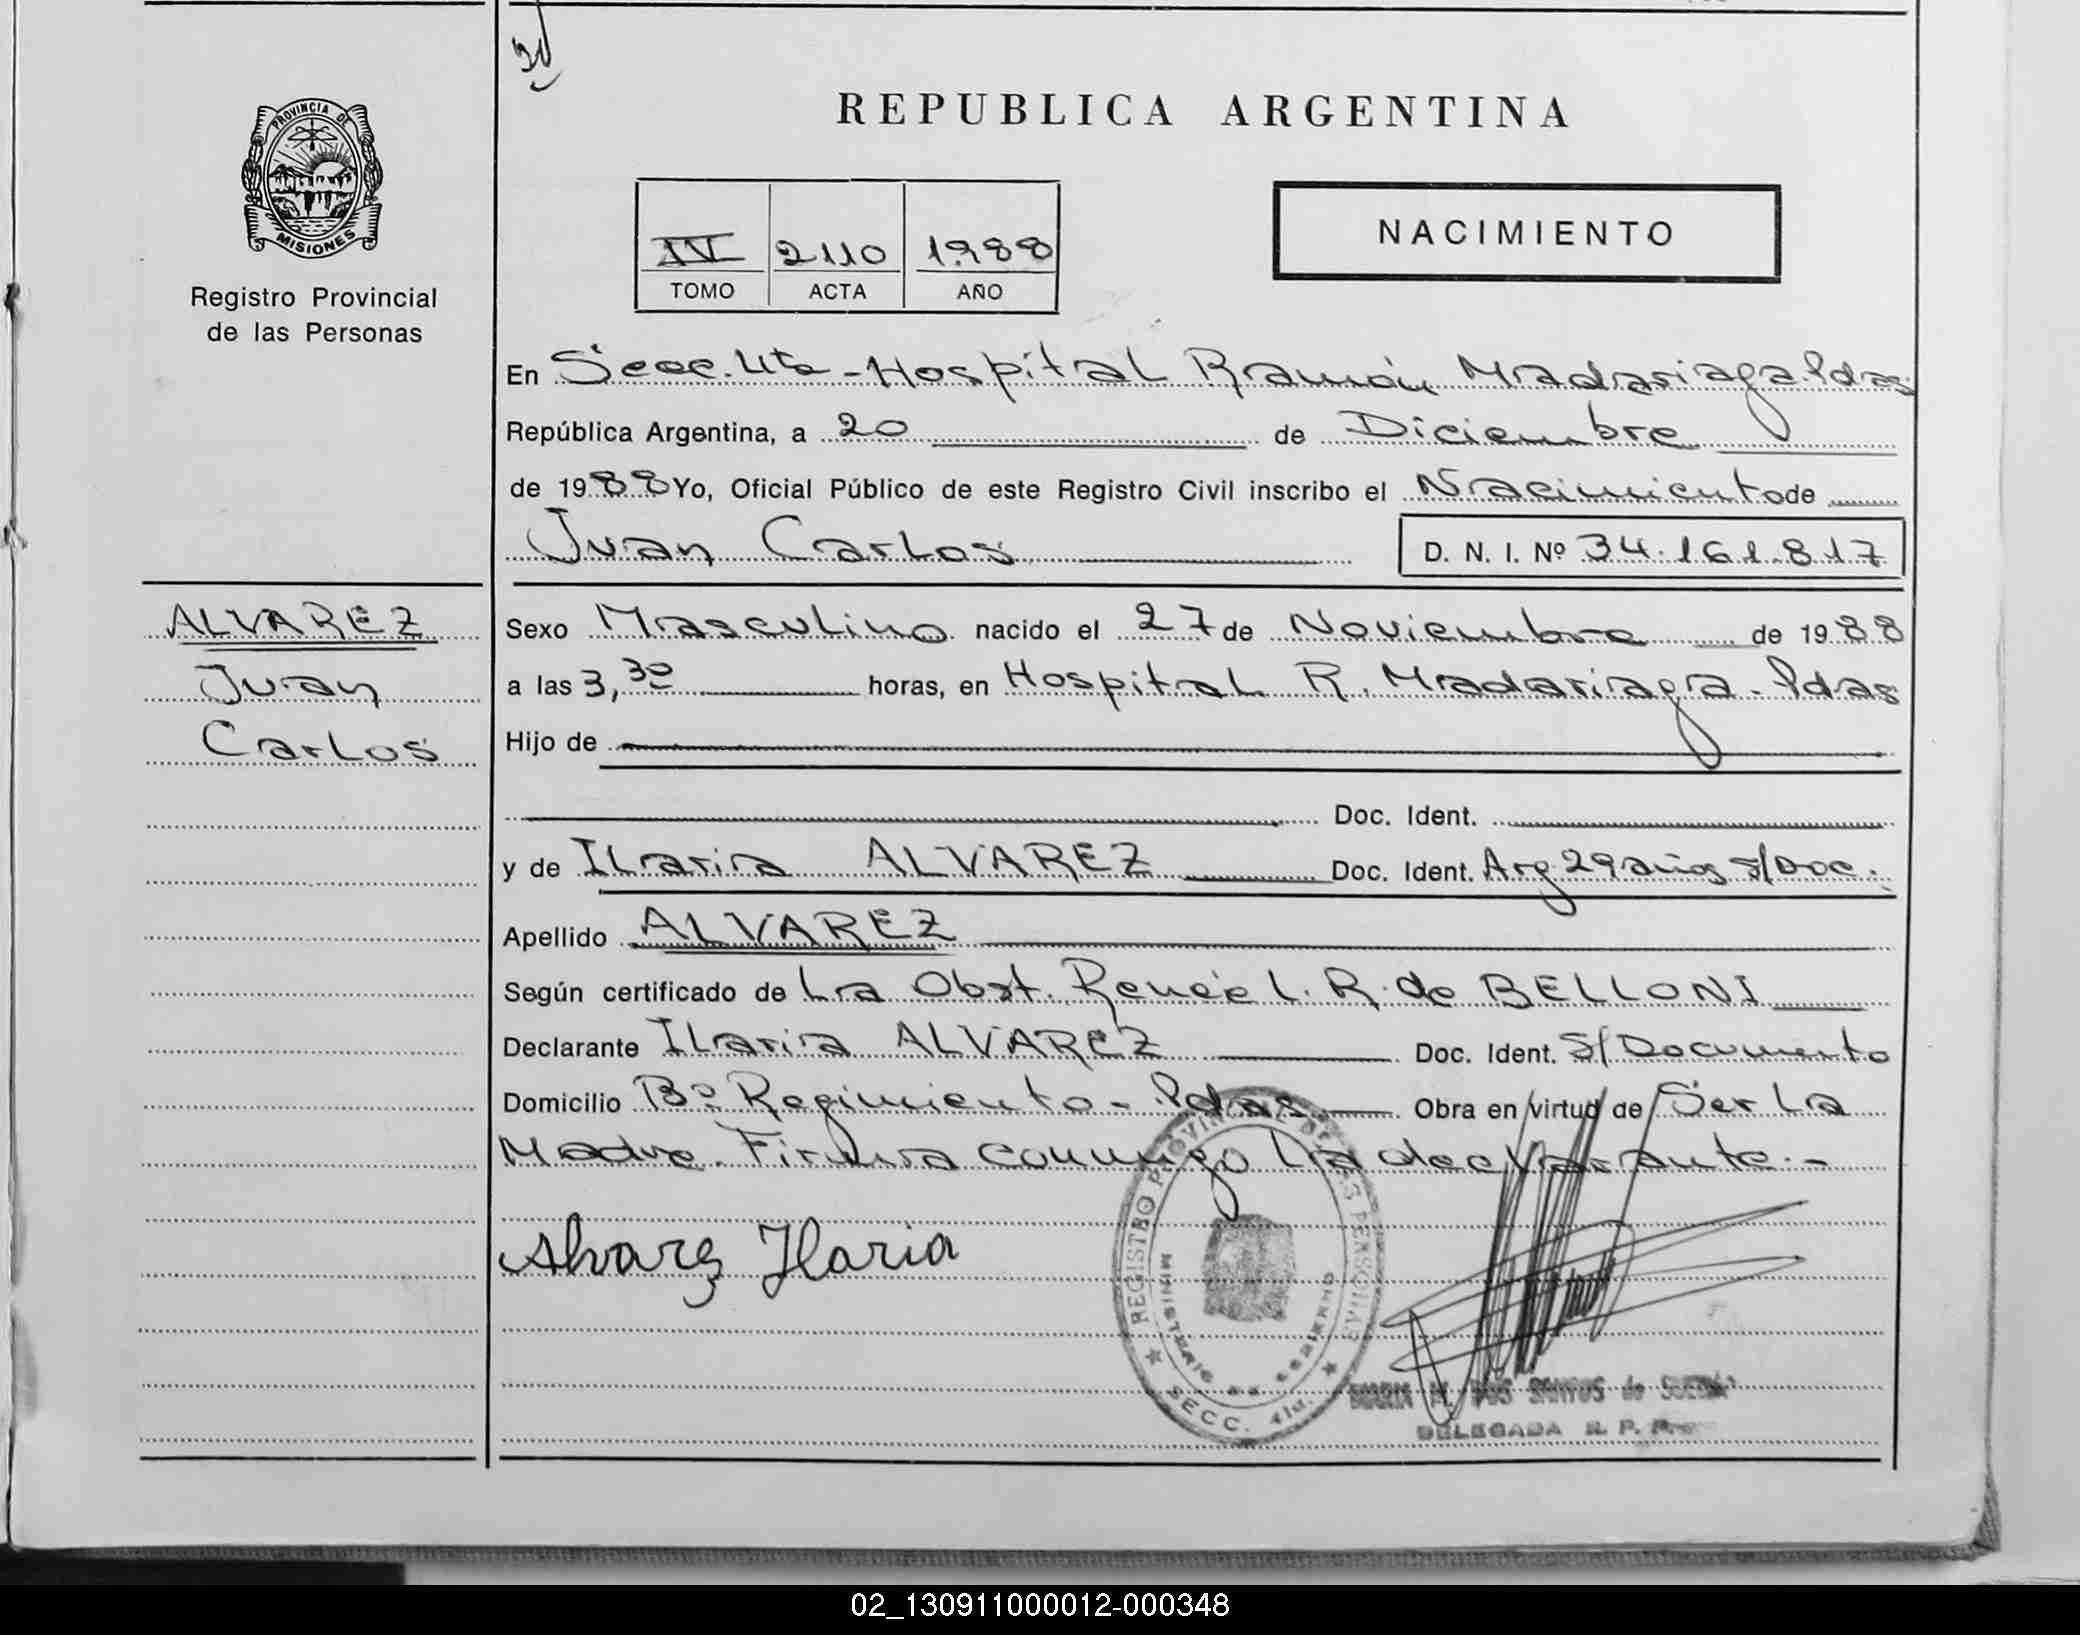 PROVINCIA DE
MISIONES
Registro Provincial
de las Personas
REPUBLICA ARGENTINA
IV 2110 1988
TOMO ACTA AÑO
NACIMIENTO
En Secc. 4ta - Hospital Ramón Madariaga. Pdas
República Argentina, a 20 de Diciembre
de 1988 Yo, Oficial Público de este Registro Civil inscribo el Nacimiento de
Juan Carlos
D. N. I. Nº 34.161.817
ALVAREZ
Juan
Carlos
Sexo Masculino nacido el 27 de Noviembre de 1988
a las 3,30 horas, en Hospital R. Madariaga - Pdas
Hijo de
Doc. Ident.
y de Ilaria ALVAREZ Doc. Ident. Arg 29 años s/Doc.
Apellido ALVAREZ
Según certificado de La Obst. Renée L. R. de BELLONI
Declarante Ilaria ALVAREZ Doc. Ident. S/Documento
Domicilio Bº Regimiento - Pdas Obra en virtud de Ser La
Madre. Firma conmigo La declarante.-
Alvarez Ilaria
REGISTRO PROVINCIAL DE LAS PERSONAS
MINISTERIO DE GOBIERNO
SECC. 4ta.
MARIA M. DOS SANTOS de
DELEGADA R. P. P.
02_130911000012-000348